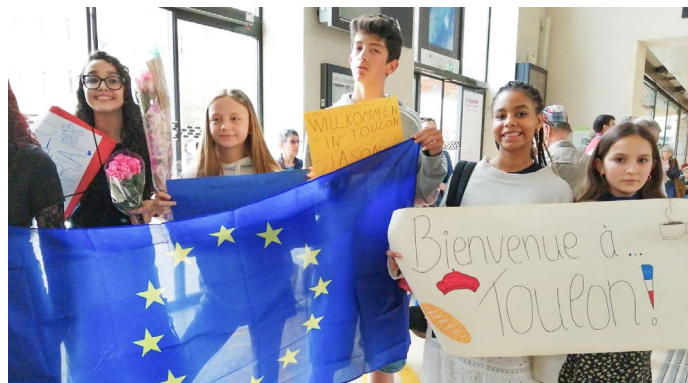 WILLKOMMEN
IN TOULON
JASON
Bienvenue à...
Toulon!